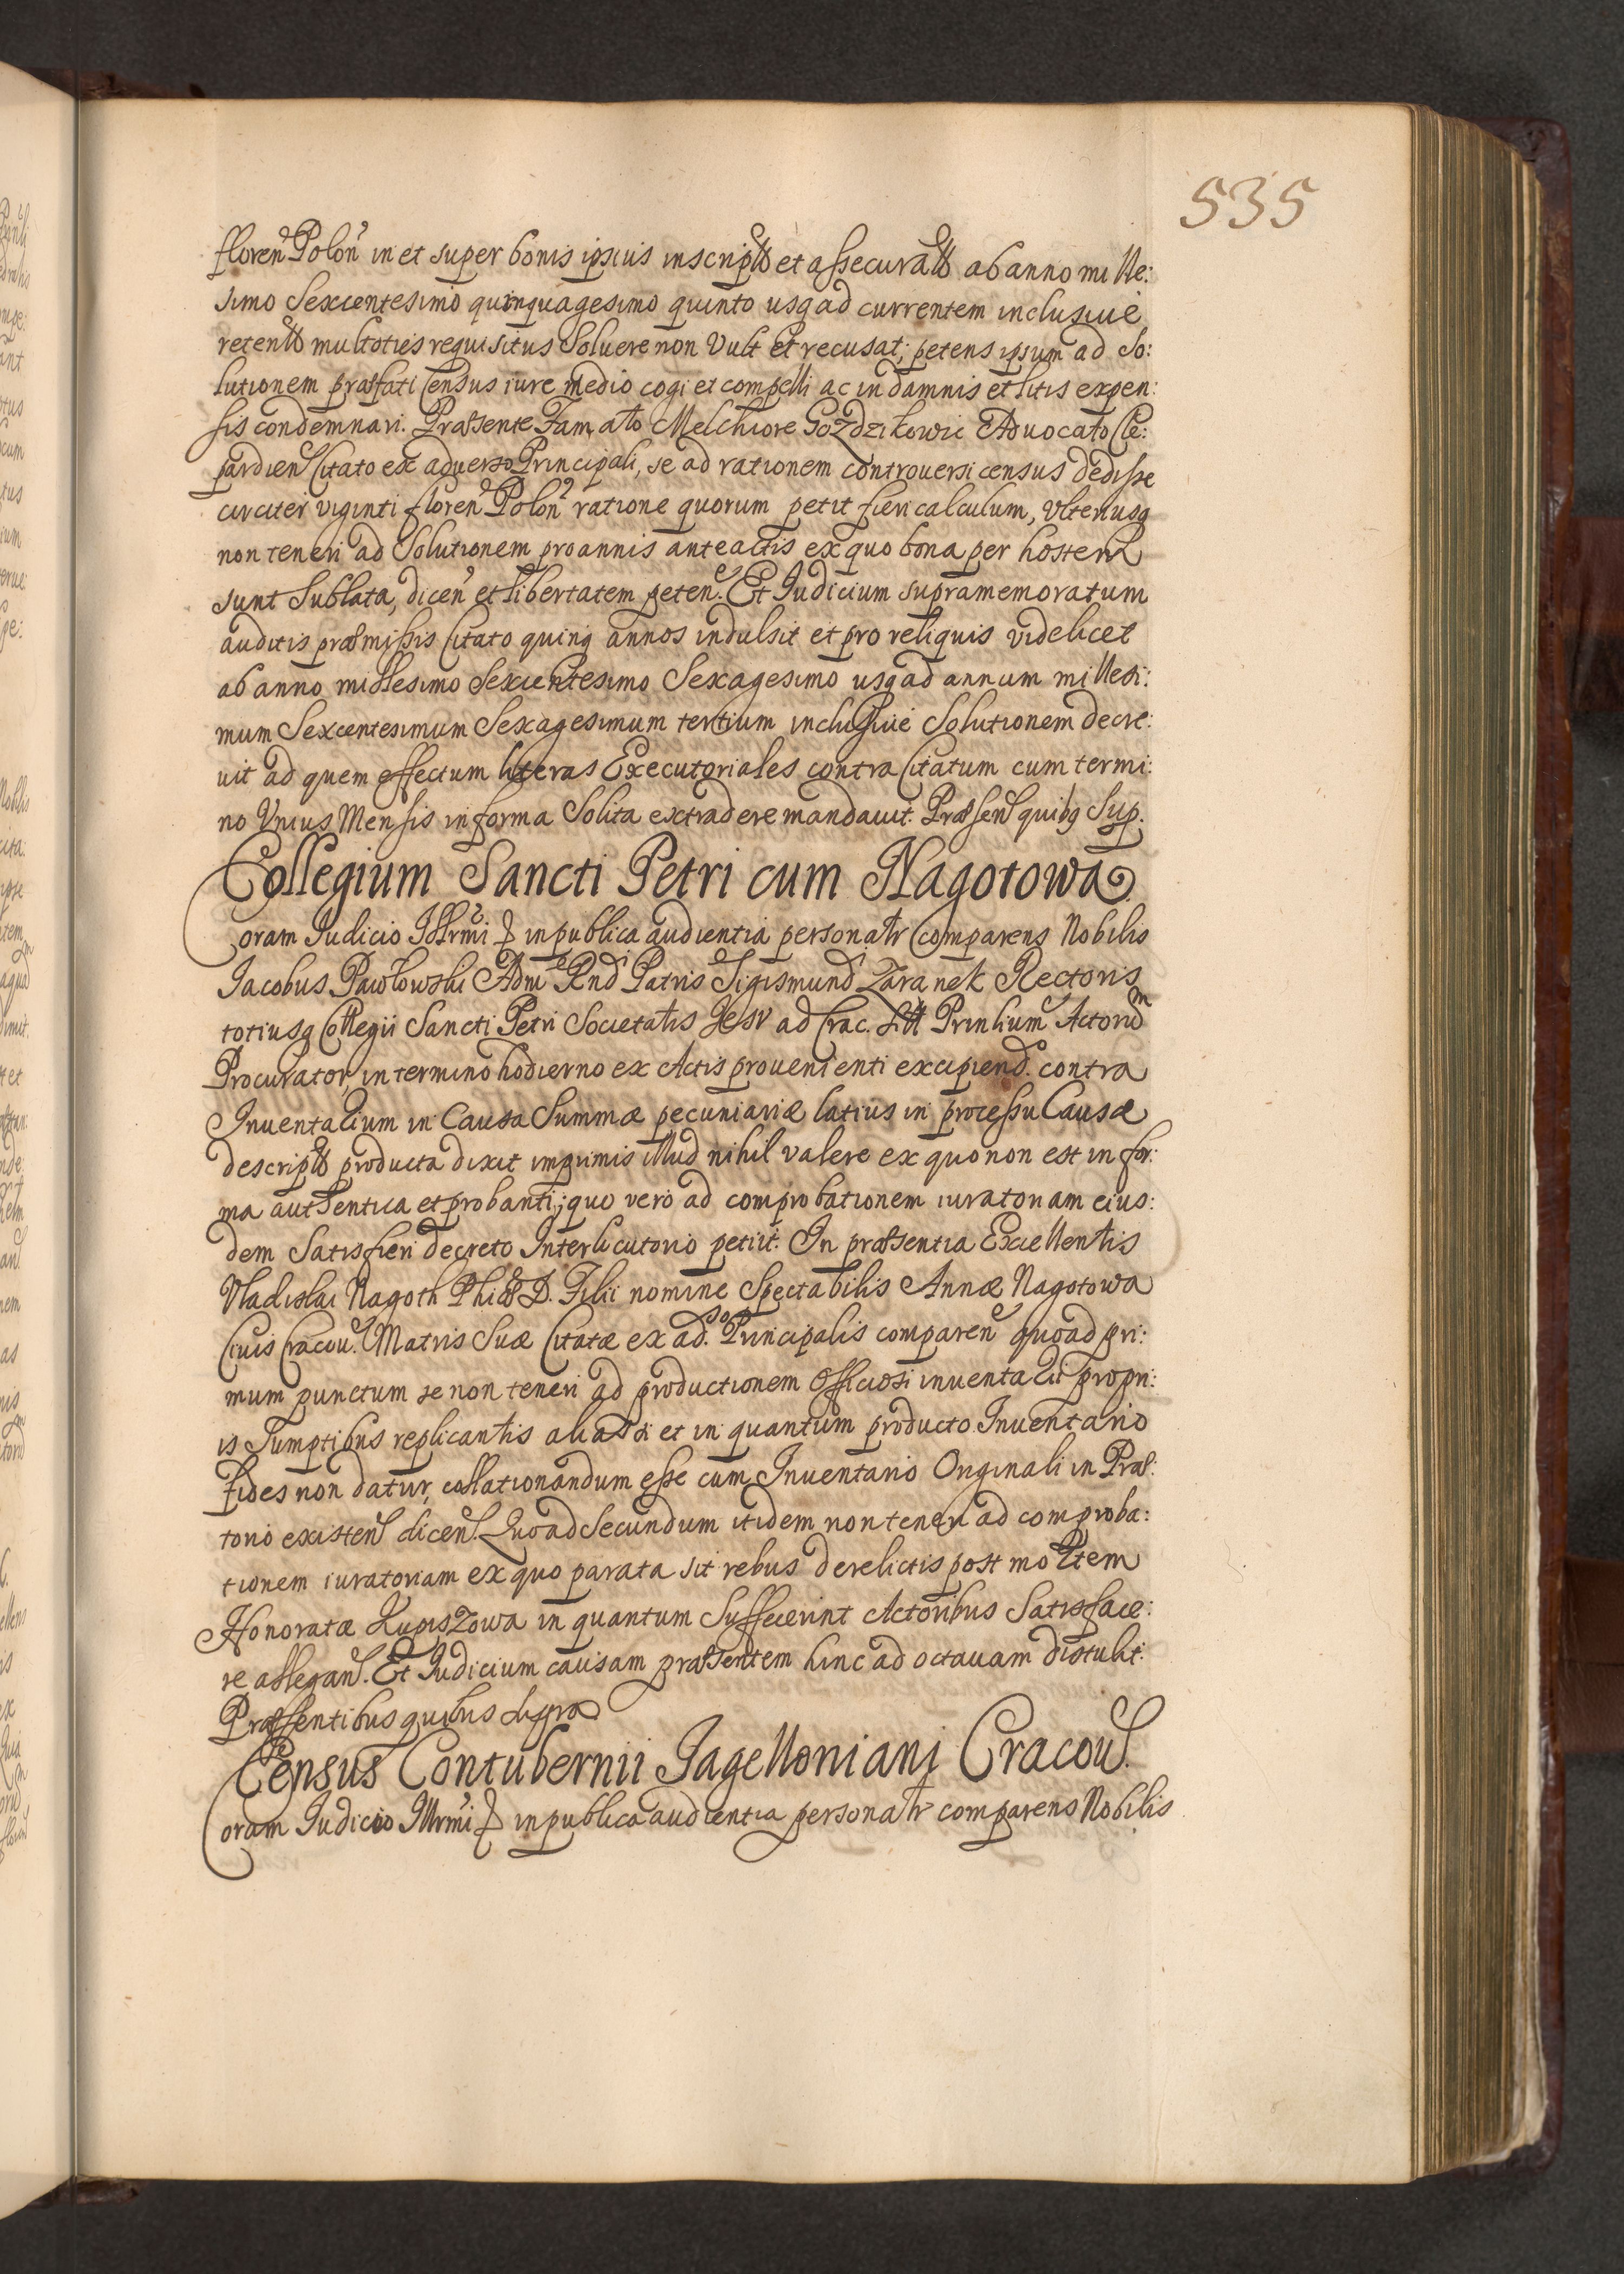 535
floren Polon in et super bonis ipsius inscript et assecurat ab anno mille:
simo Sexcentesimo quinquagesimo quinto usq ad currentem inclusiue
retent multoties requisitus Soluere non Vult et recusat; petens ipsum ad So:
lutionem præfati Census iure medio cogi et compelli ac in damnis et litis expen:
sis condemnari. Præsente Famato Melchiore Gozdzikowic Aduocato Cle:
pardien Citato ex aduerso Principali, se ad rationem controuersi census dedisse
circiter viginti floren Polon ratione quorum petit fieri calculum, Vlteriusq
non teneri ad Solutionem pro annis anteactis ex quo bona per hostem
sunt Sublata, dicen et libertatem peten. Et Iudicium supramemoratum
auditis præmissis Citato quinq annos indulsit et pro reliquis videlicet
ab anno millesimo Sexcentesimo Sexagesimo usq ad annum millesi:
mum Sexcentesimum Sexagesimum tertium inclusiue Solutionem decre:
uit ad quem effectum literas Executoriales contra Citatum cum termi:
no Vnius Mensis in forma Solita extradere mandauit. Præsen quibq Sup.
Collegium Sancti Petri cum Nagotowa
oram Iudicio Illrmi in publica audientia personatr Comparens Nobilis
Jacobus Pawlowski Adm Rndi Patris Sigismundi Zaranek Rectoris
totiusq Collegii Sancti Petri Societatis Jesv ad Crac. Prinlium Actorum
Procurator, in termino hodierno ex Actis prouenienti excipiend. contra
Inuentarium in Causa Summæ pecuniariæ latius in processu Causæ
descript producta dixit imprimis illud nihil valere ex quo non est in for:
ma authentica et probanti; quo vero ad comprobationem iuratoriam eius:
dem Satisfieri decreto Interlicutorio petiit. In præsentia Excellentis
Vladislai Nagoth Phiæ D. Filii nomine Spectabilis Annæ Nagotowa
Ciuis Cracou. Matris Suæ Citatæ ex ad.so Principalis comparen quoad pri:
mum punctum se non teneri ad productionem Officiosi inuentarii propri:
is Sumptibus replicantis alias si et in quantum producto Inuentario
fides non datur, collationandum esse cum Inuentario Originali in Præ:
torio existen dicen. Quoad Secundum itidem non teneri ad comproba:
tionem iuratoriam ex quo parata sit rebus derelictis post mortem
Honoratæ Kupiszowa in quantum Suffecerint Actoribus Satisface:
re allegan. Et Iudicium causam præsentem hinc ad octauam distulit.
Præsentibus quibus supra
Census Contubernii Jagelloniani Cracou.
oram Iudicio Illrmi in publica audientia personatr comparens Nobilis